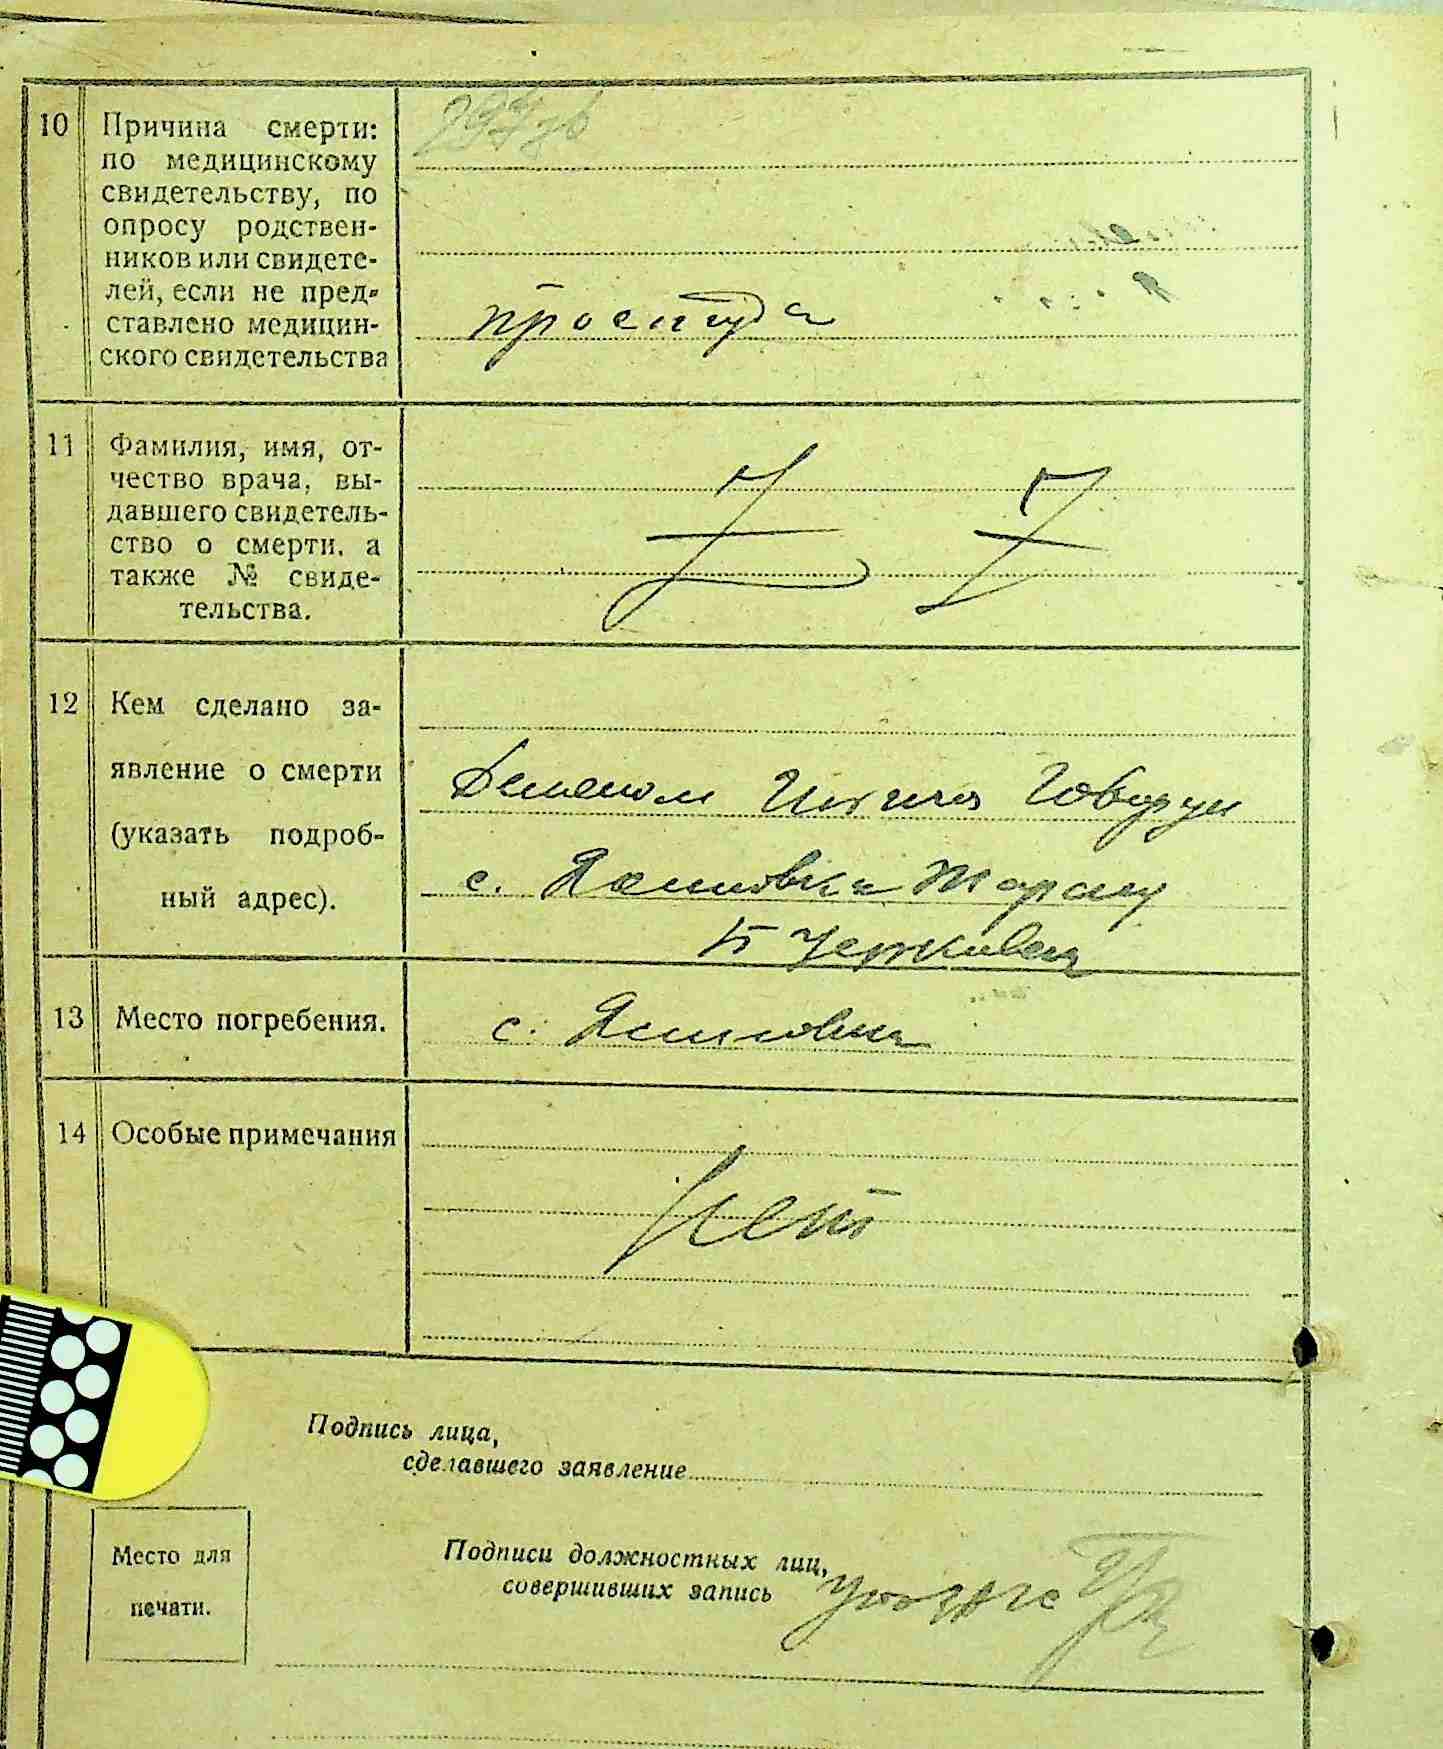 10 Причина смерти:
по медицинскому
свидетельству, по
опросу родствен-
ников или свидете-
лей, если не пред-
ставлено медицин-
ского свидетельства
простуда
11 Фамилия, имя, от-
чество врача, вы-
давшего свидетель-
ство о смерти, а
также № свиде-
тельства.
12 Кем сделано за-
явление о смерти
(указать подроб-
ный адрес).
Говорун
с.
13 Место погребения.
с.
14 Особые примечания
Нет
Подпись лица,
сделавшего заявление
Место для
печати.
Подписи должностных лиц,
совершивших запись